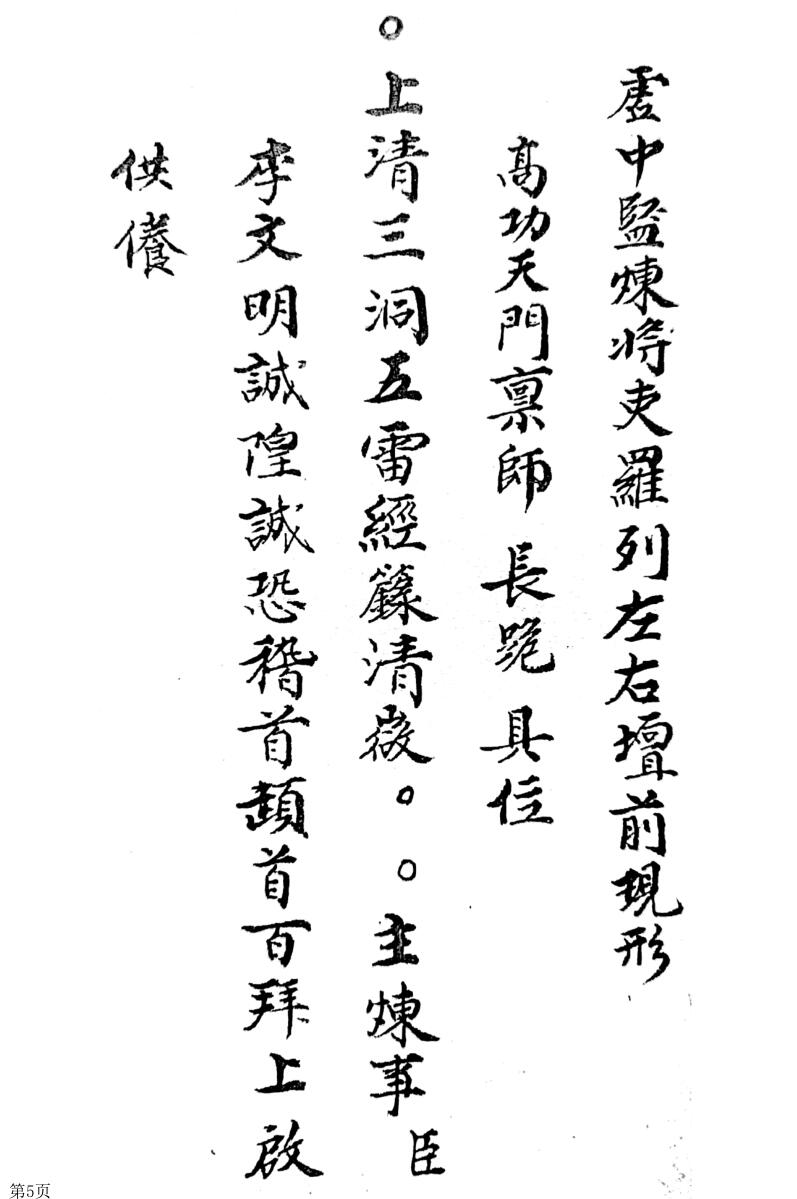 虚中監煉将吏羅列左右壇前現形
高功天門禀師 長跪 具位
○上清三洞五雷經籙清微○○主煉事臣
李文明誠隍誠恐稽首頓首百拜上啟
供養
第5页